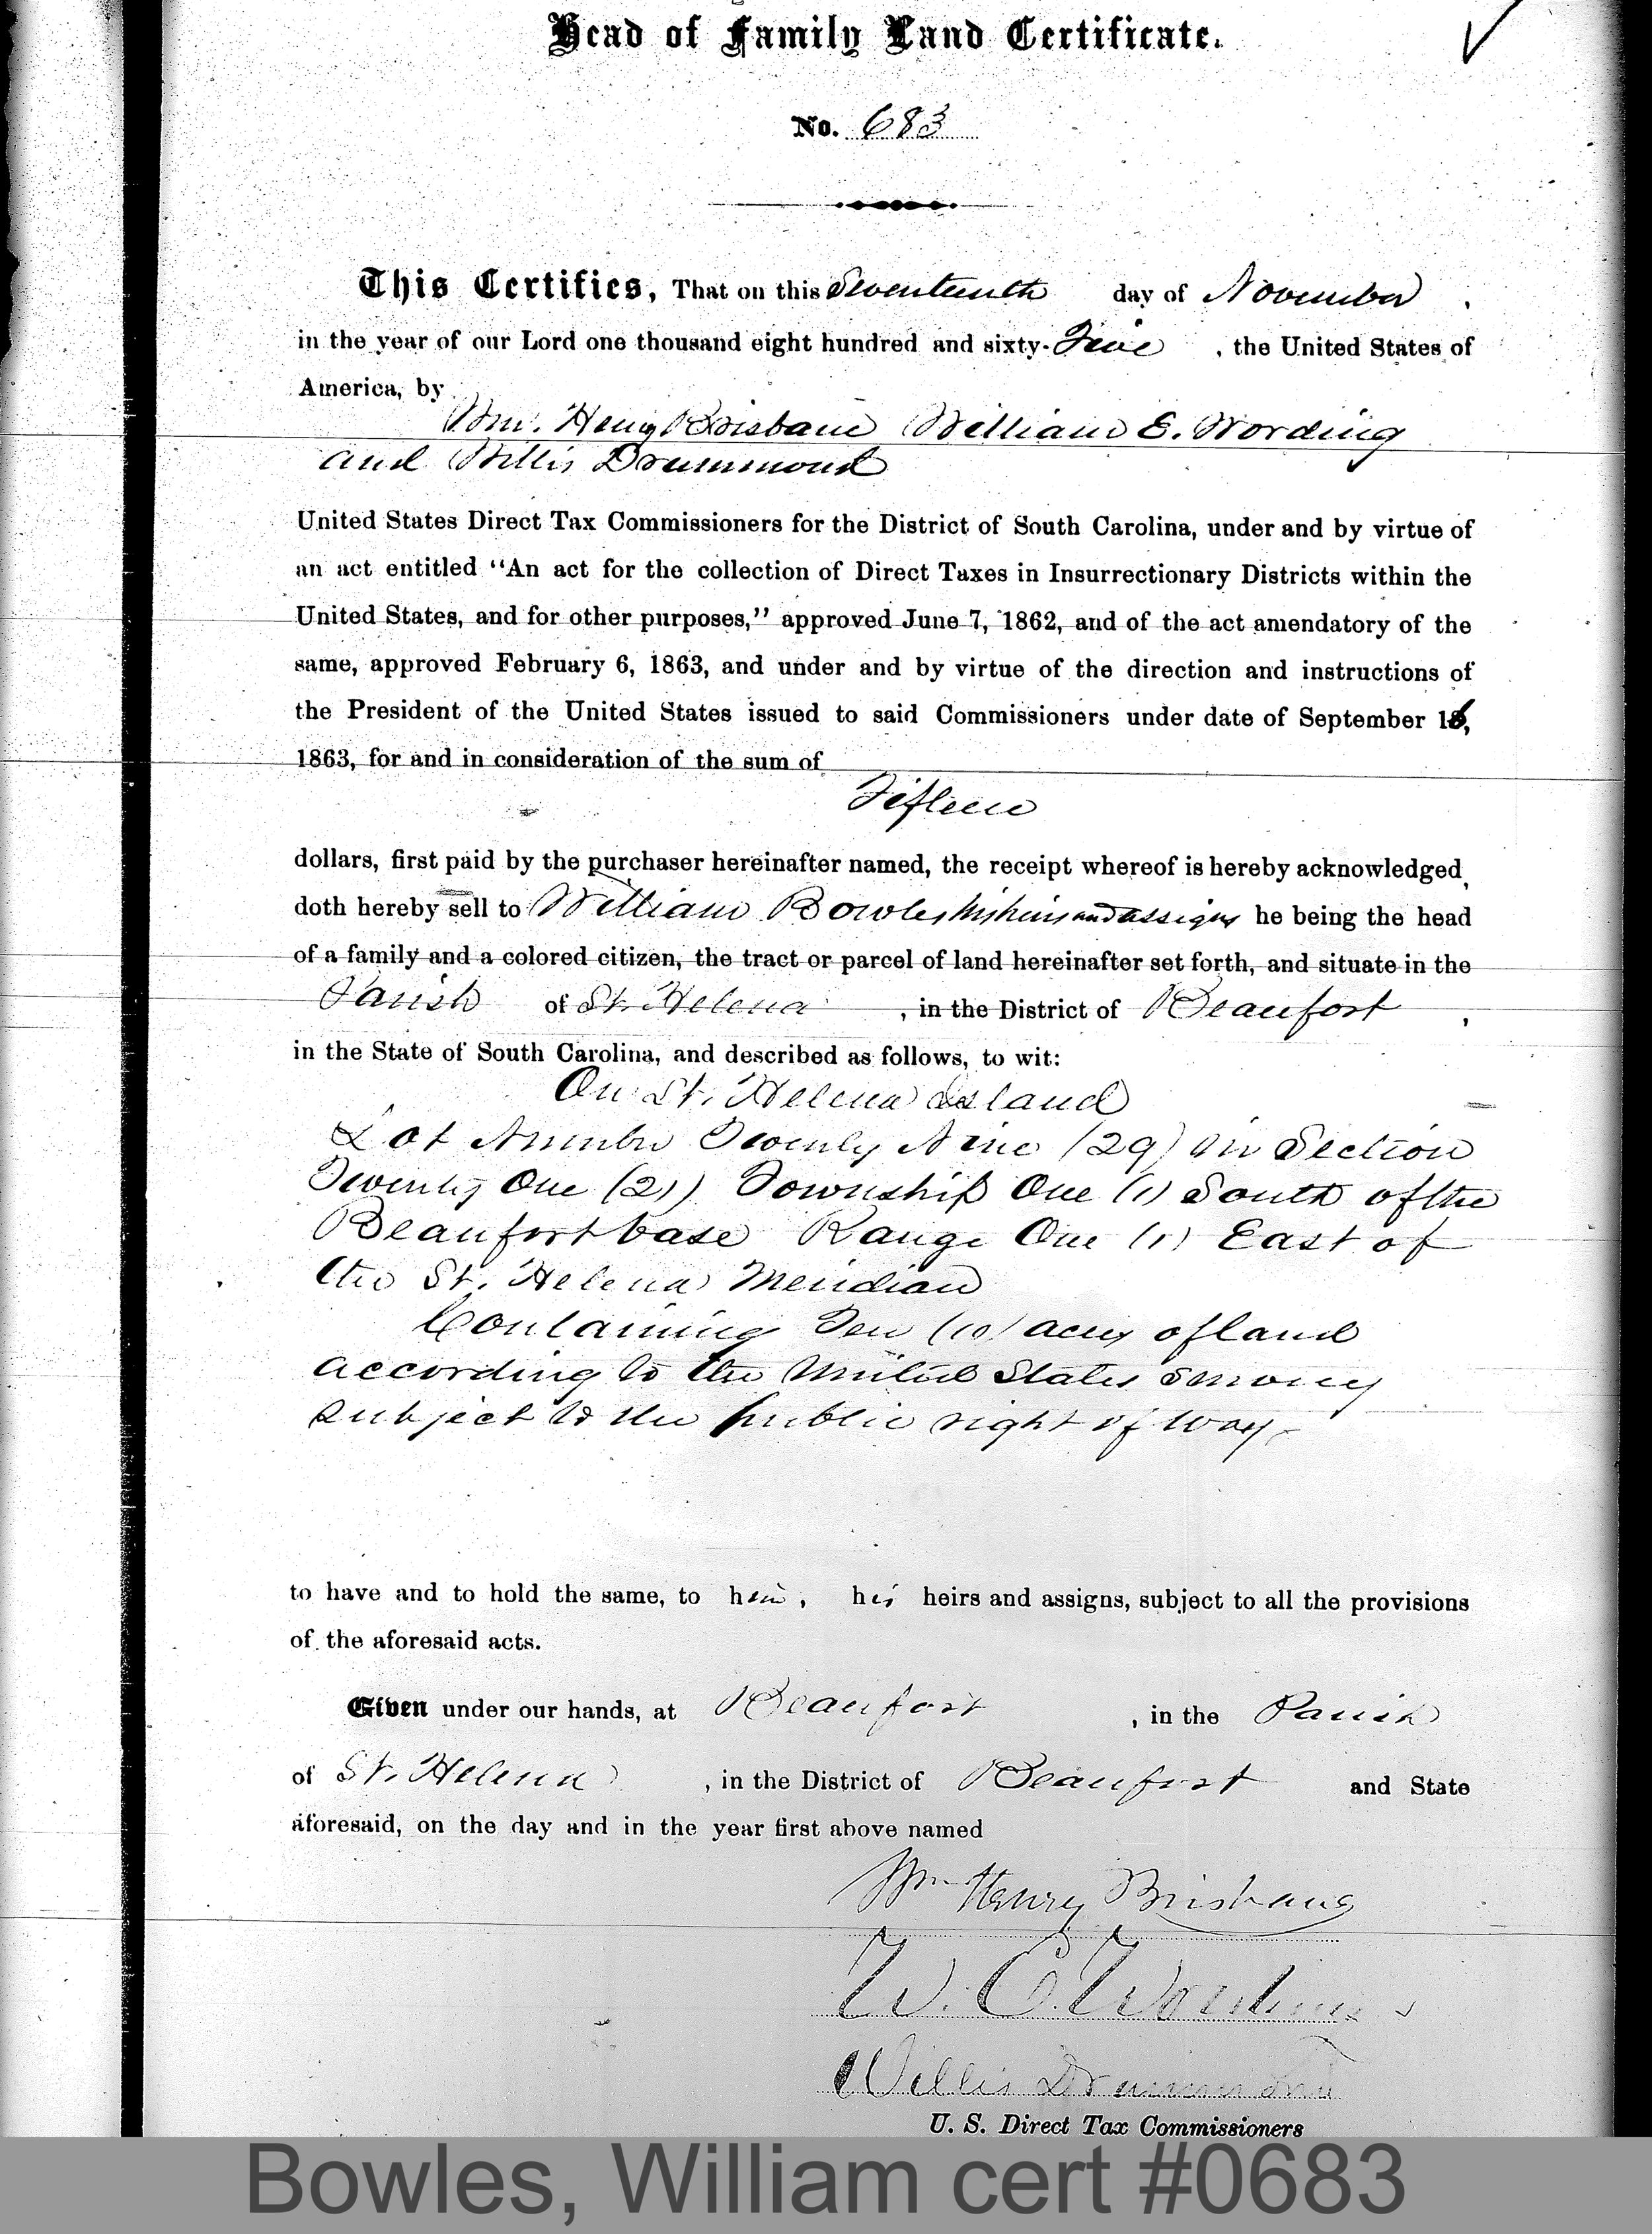 Head of Family Land Certificate.
No. 683
This Certifies, That on this Seventeenth day of November,
in the year of our Lord one thousand eight hundred and sixty-Five, the United States of
America, by
Wm. Henry Brisbane William E. Wording
and Willis Drummond
United States Direct Tax Commissioners for the District of South Carolina, under and by virtue of
an act entitled "An act for the collection of Direct Taxes in Insurrectionary Districts within the
United States, and for other purposes," approved June 7, 1862, and of the act amendatory of the
same, approved February 6, 1863, and under and by virtue of the direction and instructions of
the President of the United States issued to said Commissioners under date of September 16,
1863, for and in consideration of the sum of
Fifteen
dollars, first paid by the purchaser hereinafter named, the receipt whereof is hereby acknowledged,
doth hereby sell to William Bowles his heirs and assigns he being the head
of a family and a colored citizen, the tract or parcel of land hereinafter set forth, and situate in the
Parish of St. Helena, in the District of Beaufort,
in the State of South Carolina, and described as follows, to wit:
On St. Helena Island
Lot Number Twenty Nine (29) in Section
Twenty One (21) Township One (1) South of the
Beaufort base Range One (1) East of
the St. Helena Meridian
Containing Ten (10) acres of land
according to the United States Survey
subject to the public right of way.
to have and to hold the same, to him, his heirs and assigns, subject to all the provisions
of the aforesaid acts.
Given under our hands, at Beaufort, in the Parish
of St. Helena, in the District of Beaufort and State
aforesaid, on the day and in the year first above named
Wm Henry Brisbane
W. E. Wording
Willis Drummond
U. S. Direct Tax Commissioners
Bowles, William cert #0683